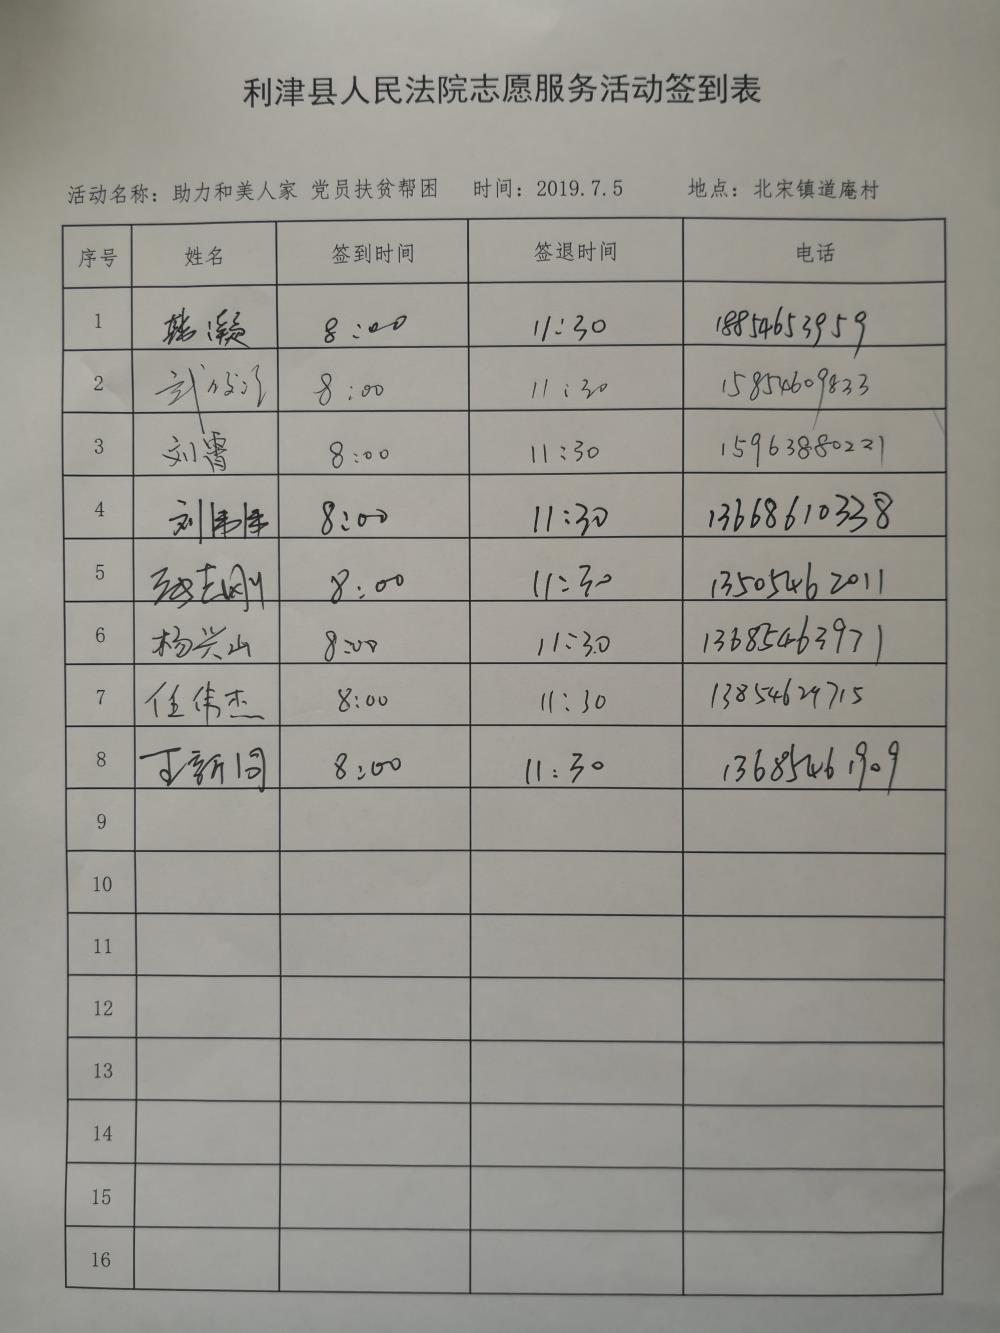 利津县人民法院志愿服务活动签到表
活动名称：助力和美人家 党员扶贫帮困 时间：2019.7.5 地点：北宋镇道庵村
序号 姓名 签到时间 签退时间 电话
1 韩灏 8:00 11:30 18854653959
2 8:00 11:30 15854609833
3 刘霄 8:00 11:30 15963880221
4 刘 8:00 11:30 13668610338
5 张志刚 8:00 11:30 13505462011
6 杨兴山 8:00 11:30 13685463971
7 任伟杰 8:00 11:30 13854629715
8 王新同 8:00 11:30 13685461909
9
10
11
12
13
14
15
16